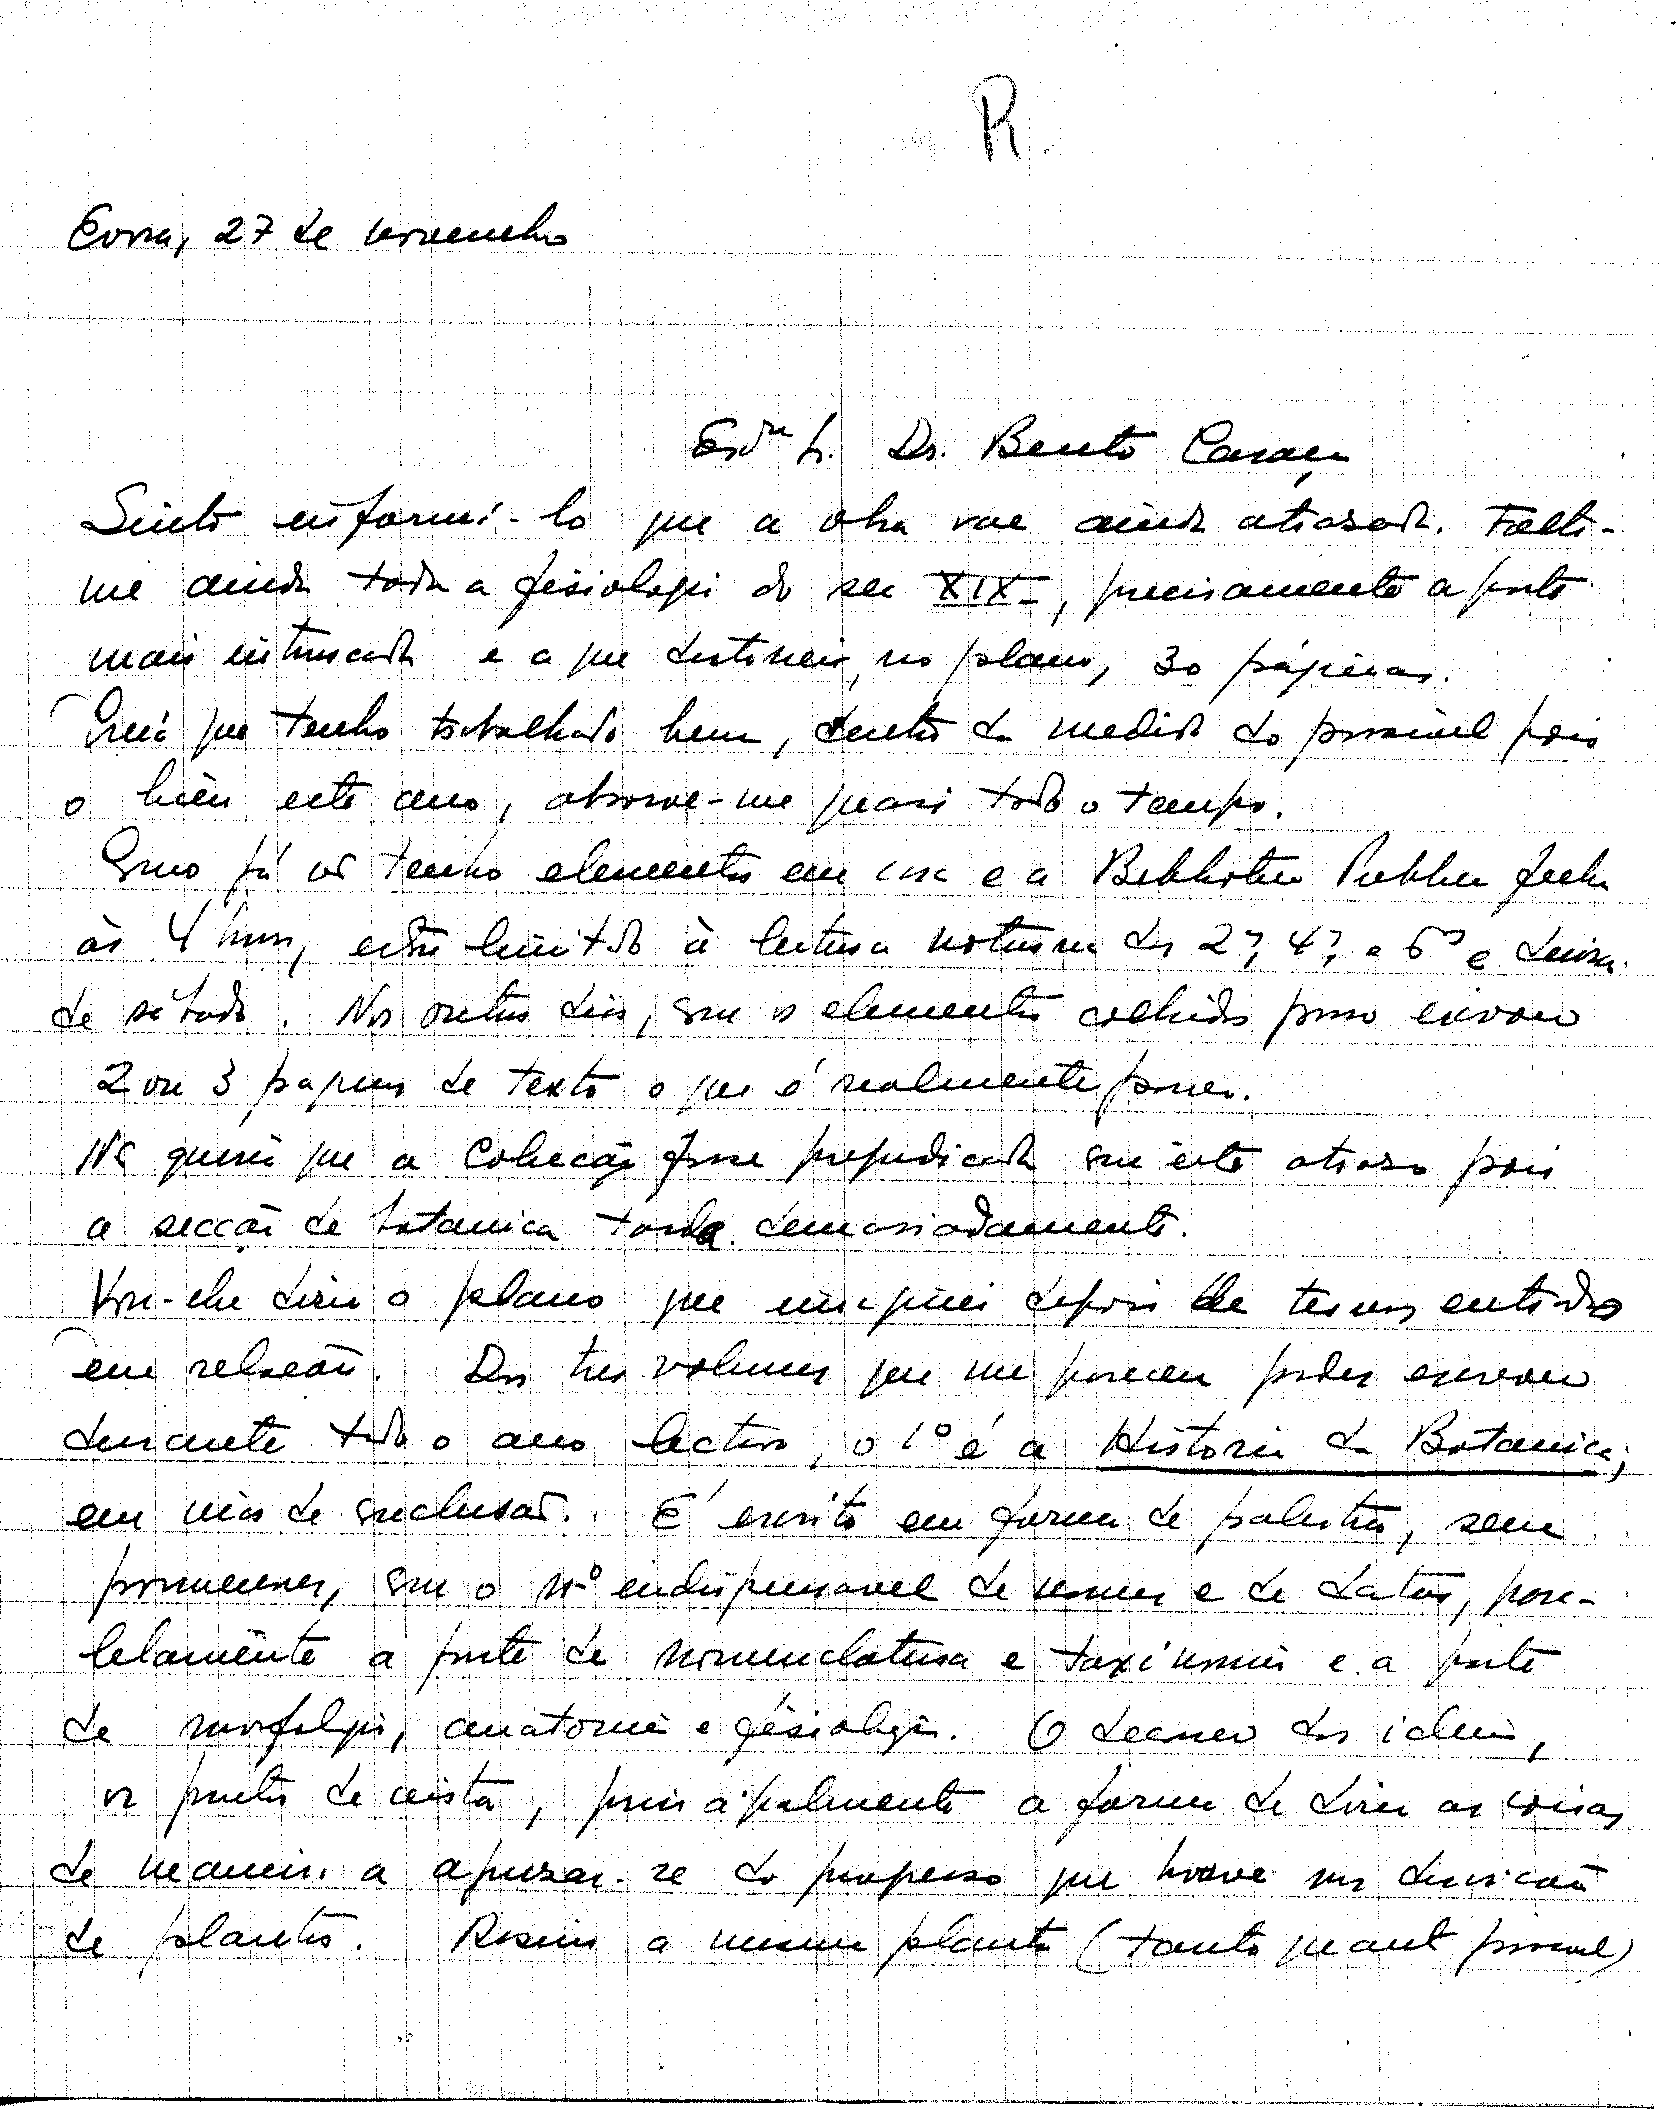 R.
Evora, 27 de novembro
Exmo Sr. Dr. Bento Caraça
Sinto informá-lo que a obra vae ainda atrasada. Falta-
me ainda toda a fisiologia do sec XIX, precisamente a parte
mais intrincada e a que destinei, no plano, 30 páginas.
Creia que tenho trabalhado bem, dentro da medida do possivel pois
o liceu este ano, absorve-me quasi todo o tempo.
Como já não tenho elementos em casa e a Biblioteca Publica fecha
às 4 horas, estou limitado à leitura noturna das 2ªs, 4ªs e 6ªs e
de sábado. Nos outros dias, com os elementos colhidos posso escrever
2 ou 3 paginas de texto o que é realmente pouco.
Não queria que a Colecção fosse prejudicada com este atraso pois
a secção de botanica tarda demasiadamente.
Vou-lhe dizer o plano que depois de termos entrado
em relação. Dos tres volumes que me parecem poder escrever
durante todo o ano lectivo, o 1º é a Historia da Botanica,
em vias de conclusão. É escrito em forma de palestra, sem
pormenores, com o nº indispensavel de nomes e de datas, para-
lelamente a parte de nomenclatura e taxinomia e a parte
de morfologia, anatomia e fisiologia. O das ideias,
os pontos de vista, principalmente a forma de dizer as coisas
de maneira a aperceber-se do progresso que houve na descrição
de plantas. Assim a mesma planta (tanto quanto possivel)